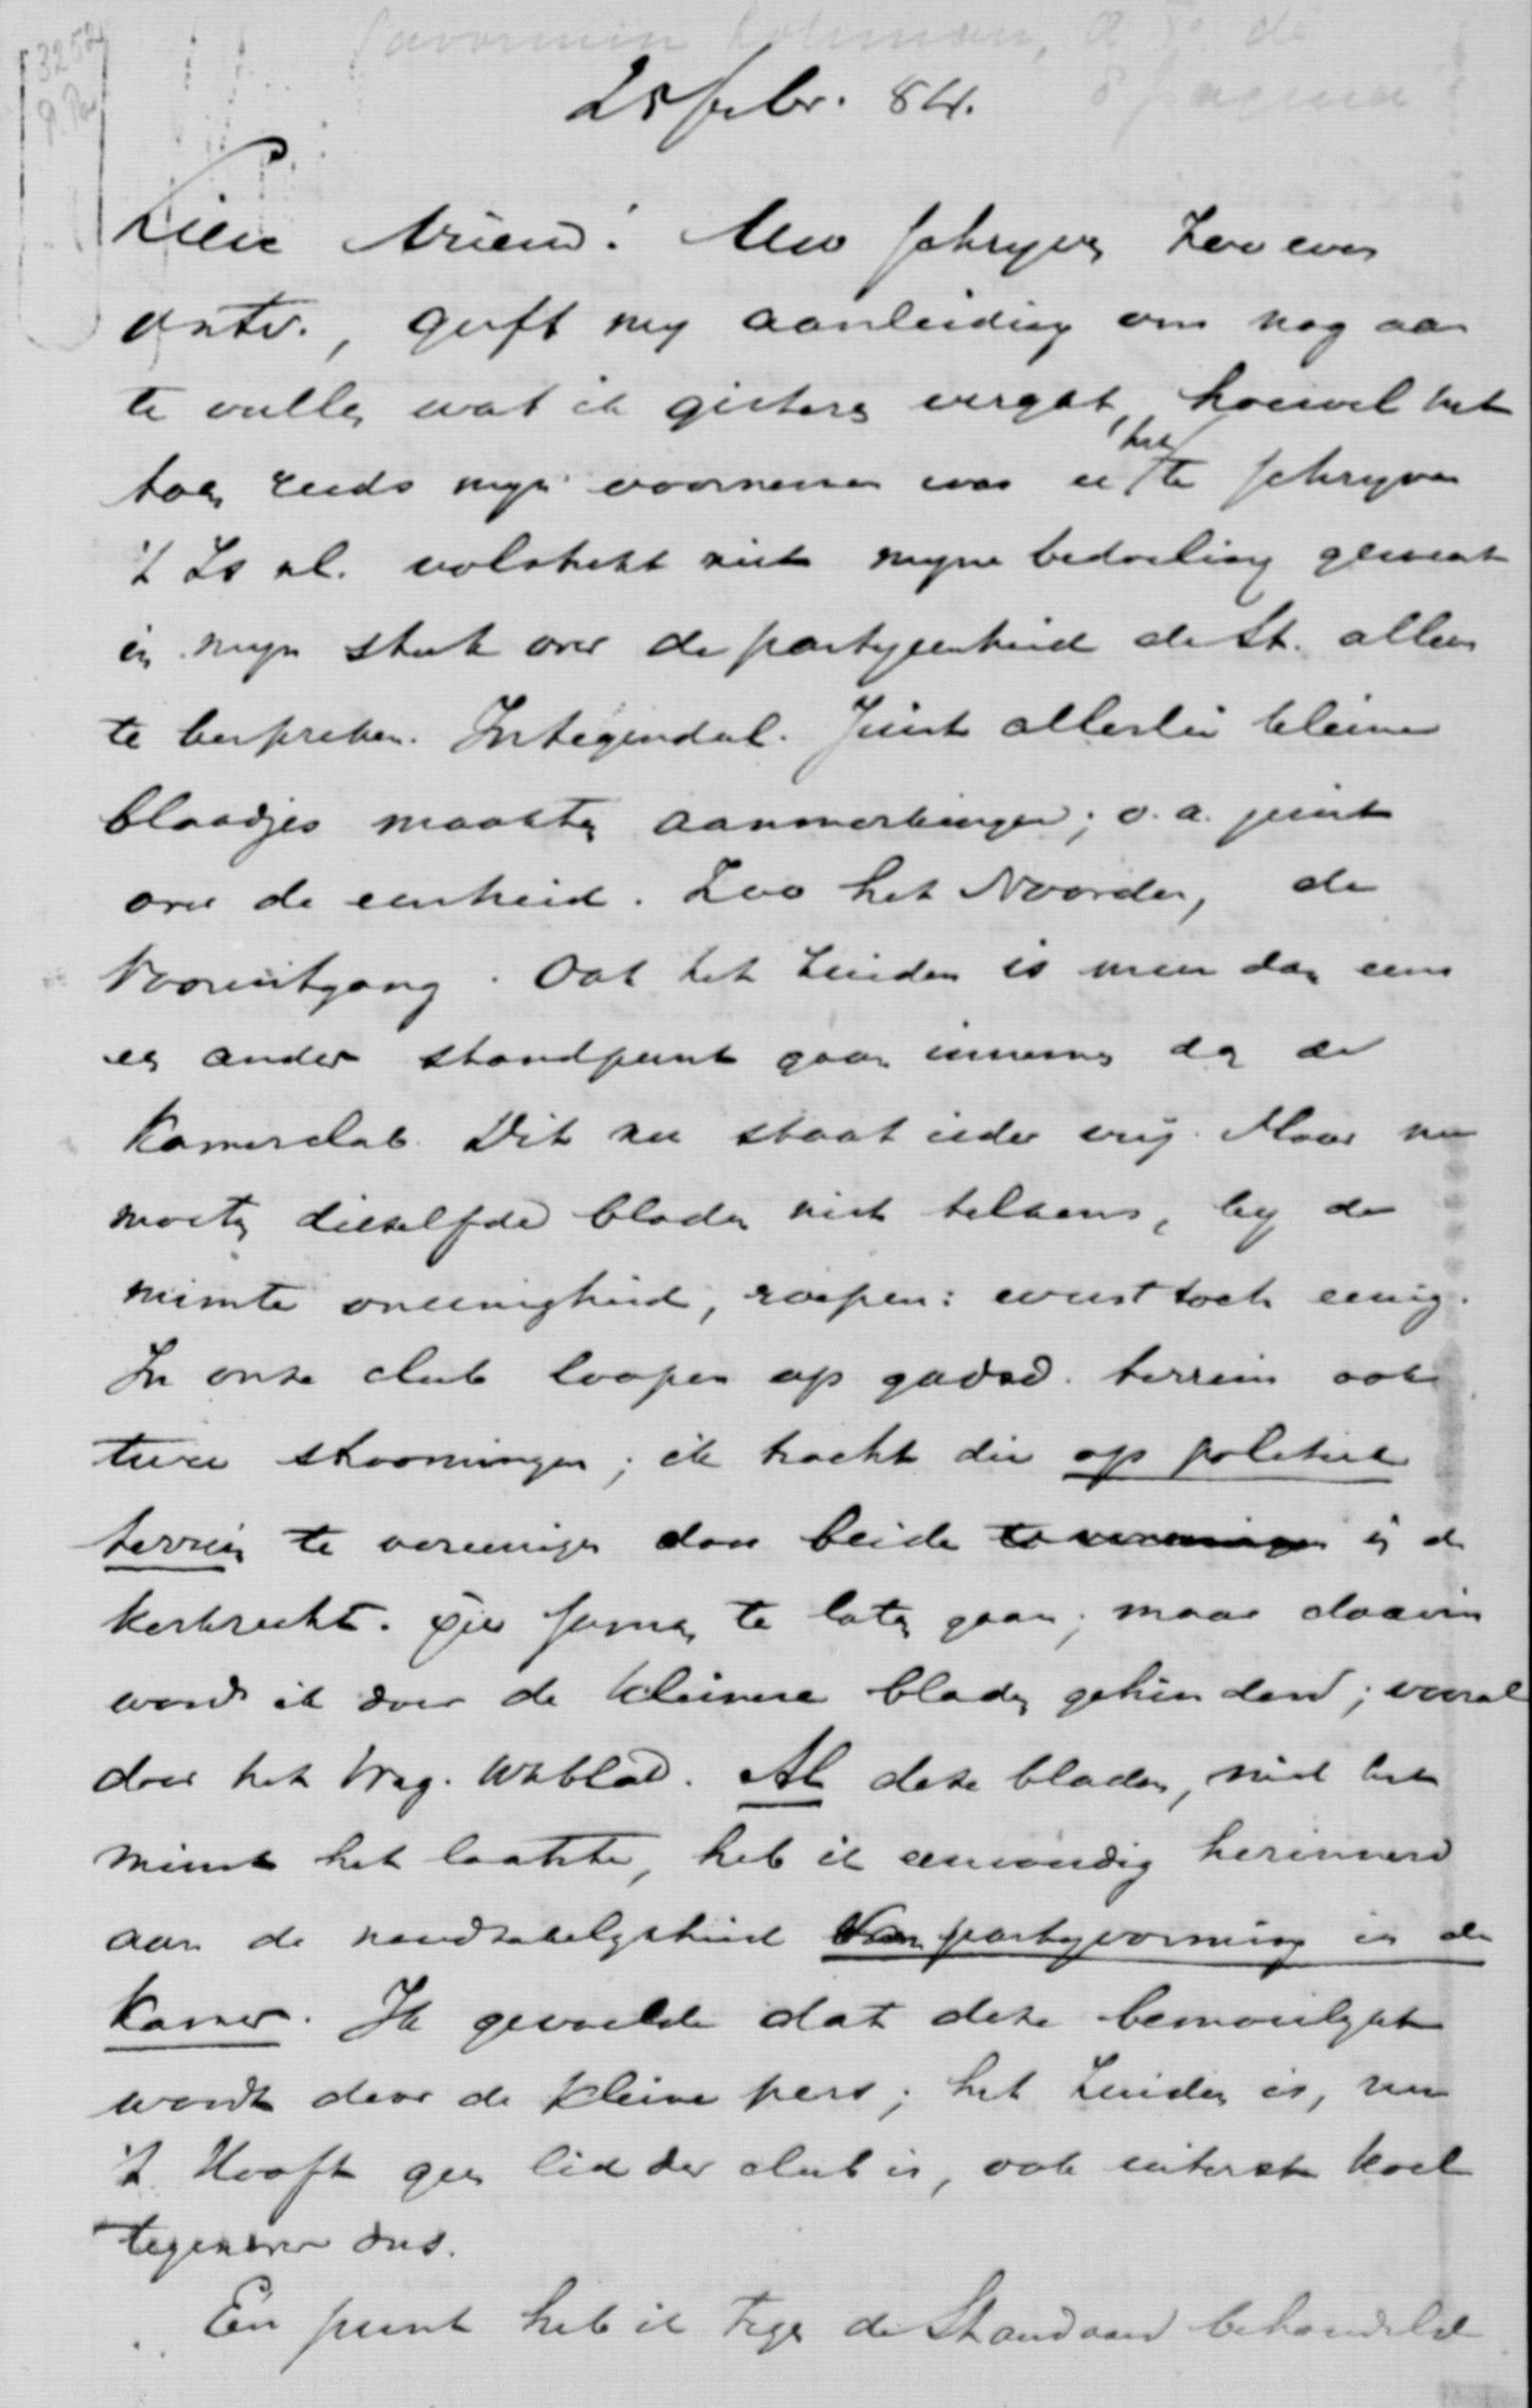 Savornin Lohman, A. F. de
3252
8 pagina
25 febr. 84.
Lieve Vriend! Uw schrijven zoo even
ontv., geeft mij aanleiding om nog aan
te vullen wat ik gisteren vergat, hoewel het
toen reeds mijn voornemen was het te schrijven
't Is nl. volstrekt niet mijne bedoeling geweest
in mijn stuk over de partijeenheid de St. alleen
te bespreken. Integendeel. Juist allerlei kleine
blaadjes maakten aanmerkingen; o.a. juist
over de eenheid. Zoo het Noorden, de
Vooruitgang. Ook het Zuiden is meer dan eens
een ander standpunt gaan innemen dan de
Kamerclub. Dit nu staat ieder vrij. Maar nu
moeten diezelfde bladen niet telkens, bij de
minste oneenigheid, roepen: weest toch eenig.
In onze club loopen op godsd. terrein ook
twee stroomingen; ik tracht die op politiek
terrein te vereenigen door beide te vereenigen in de
kerkrecht. zamen te laten gaan; maar daarin
word ik door de kleinere bladen gehinderd; vooral
door het Wag. Wkblad. Al deze bladen, niet het
minst het laatste, heb ik eenvoudig herinnerd
aan de noodzakelijkheid van partijvorming in de
Kamer. Ik gevoelde dat deze bemoeilijkt
wordt door de kleine pers; het Zuiden is, nu
't Hooft geen lid der club is, ook uiterst koel
tegenover ons.
Een punt heb ik tegen de Standaard behandeld